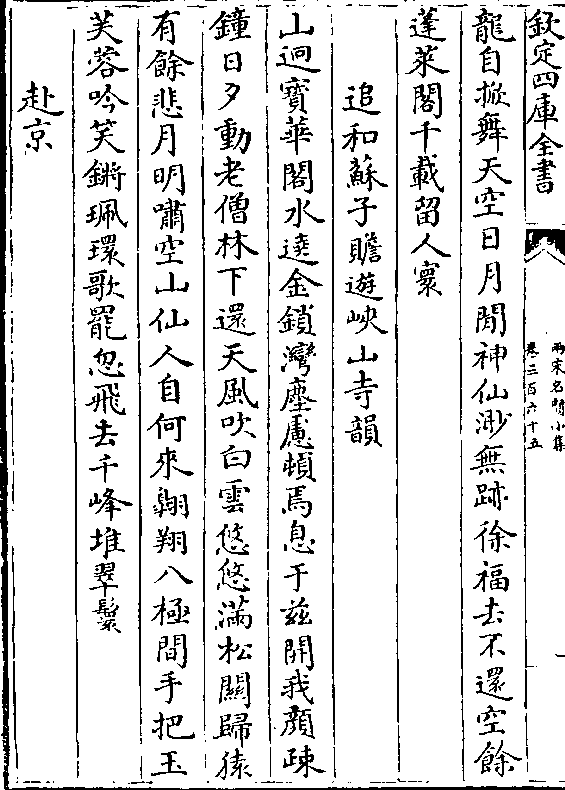 欽定四庫全書
兩宋名賢小集
卷三百六十五
龍自掀舞天空日月閒神仙渺無跡徐福去不還空餘
蓬萊閣千載留人寰
追和蘇子瞻遊峽山寺韻
山迥寶華閣水遶金鎖灣塵慮頓焉息于兹開我顔疎
鐘日夕動老僧林下還天風吹白雲悠悠滿松關歸猿
有餘悲月明嘯空山仙人自何來翺翔八極間手把玉
芙蓉吟笑鏘珮環歌罷忽飛去千峰堆翠鬟
赴京